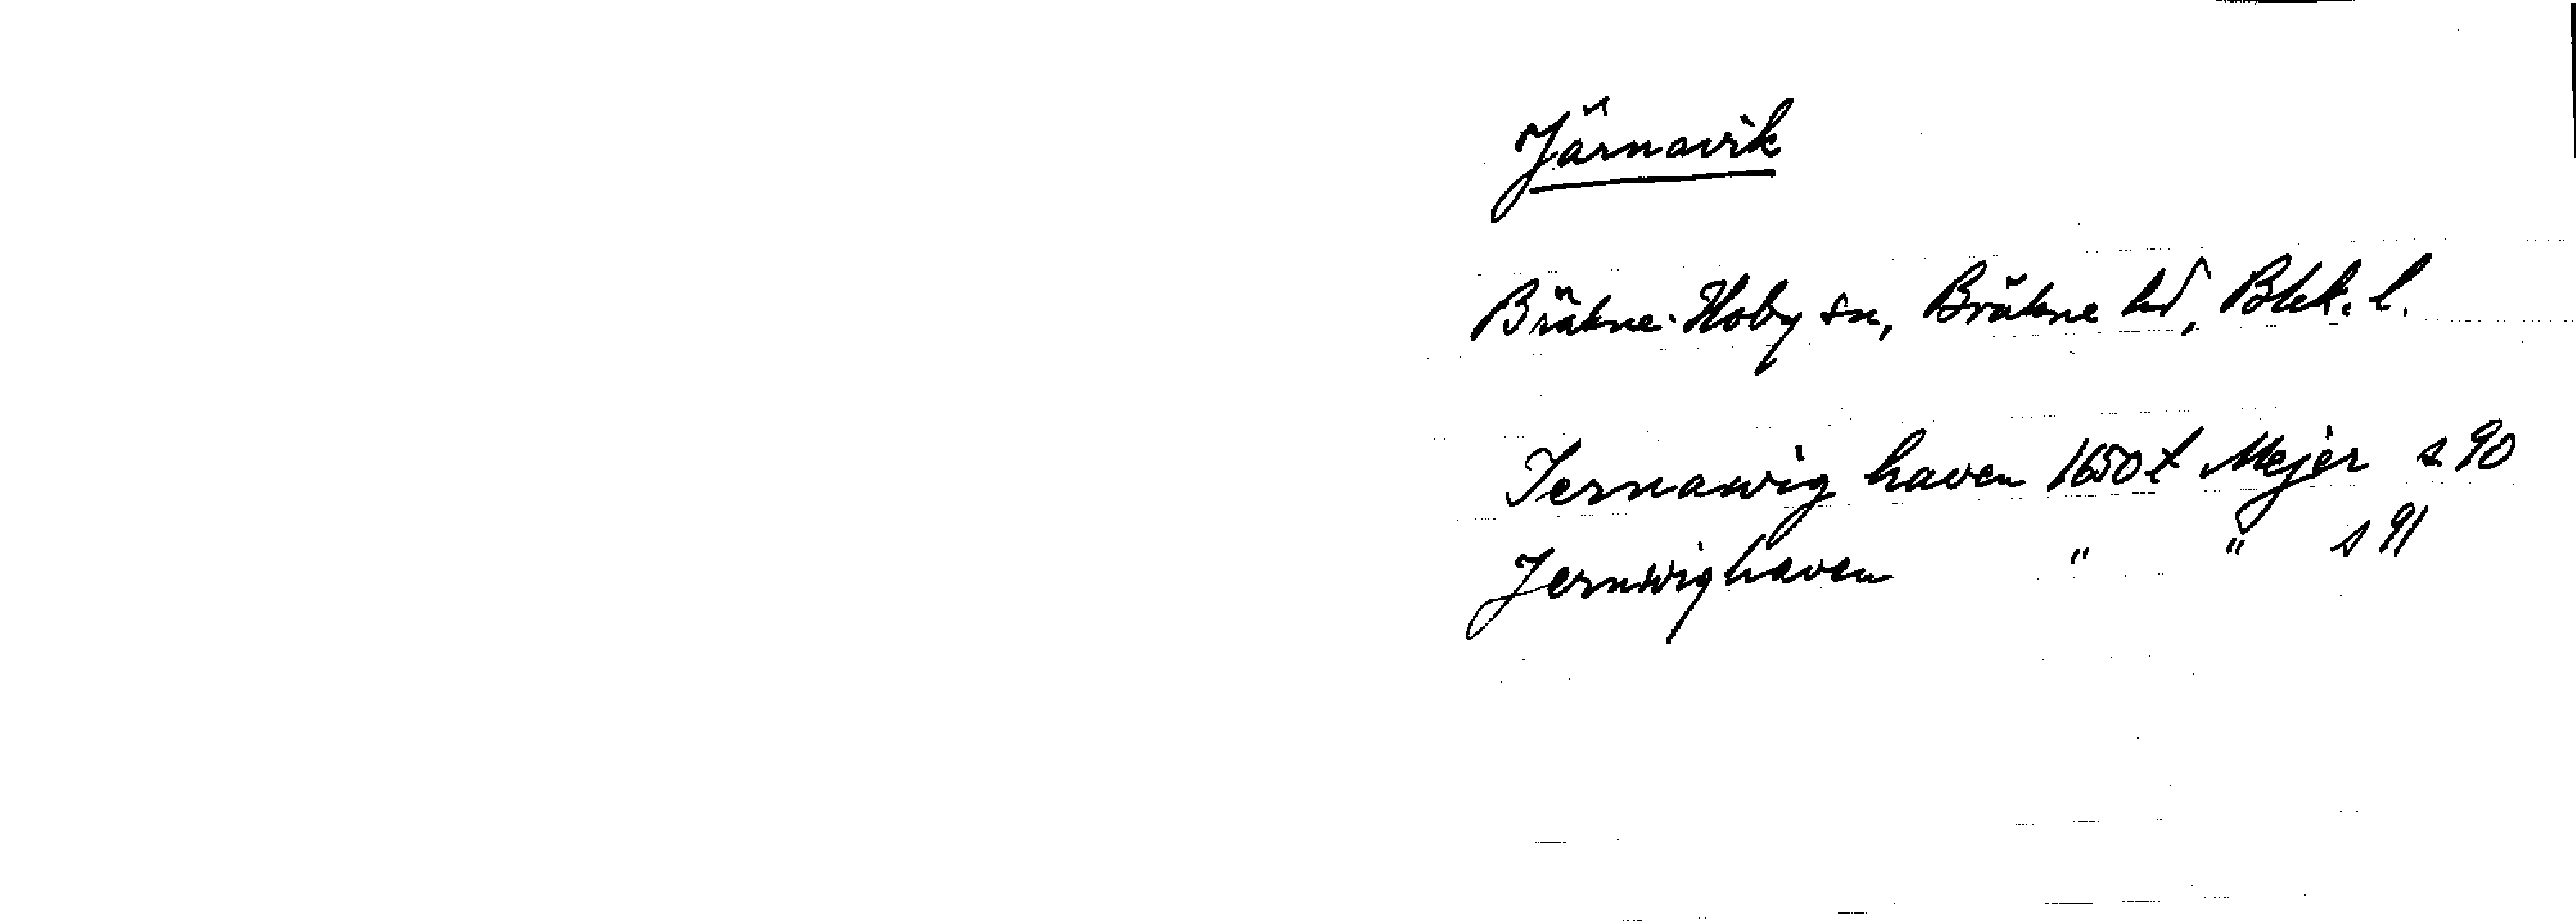 Järnavik
Bräkne-Hoby sn, Bräkne hd, Blek. l.
Jernawig haven 1650 t Mejer s 90
Jernwighaven " " s 91